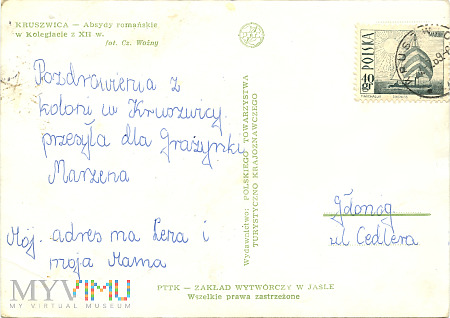 KRUSZWICA — Absydy romańskie
w Kolegiacie z XII w.
fot. Cz. Woźny
Pozdrowienia z
koloni w Kruszwicy
przesyła dla Grażynki
Marzena
Mój. adres ma Lera i
moja Mama
Wydawnictwo: POLSKIEGO TOWARZYSTWA
TURYSTYCZNO KRAJOZNAWCZEGO
POLSKA
40 gr
Gdonóg
ul Cedlera
PTTK — ZAKŁAD WYTWÓRCZY W JAŚLE
Wszelkie prawa zastrzeżone
MYVIMU
MY VIRTUAL MUSEUM